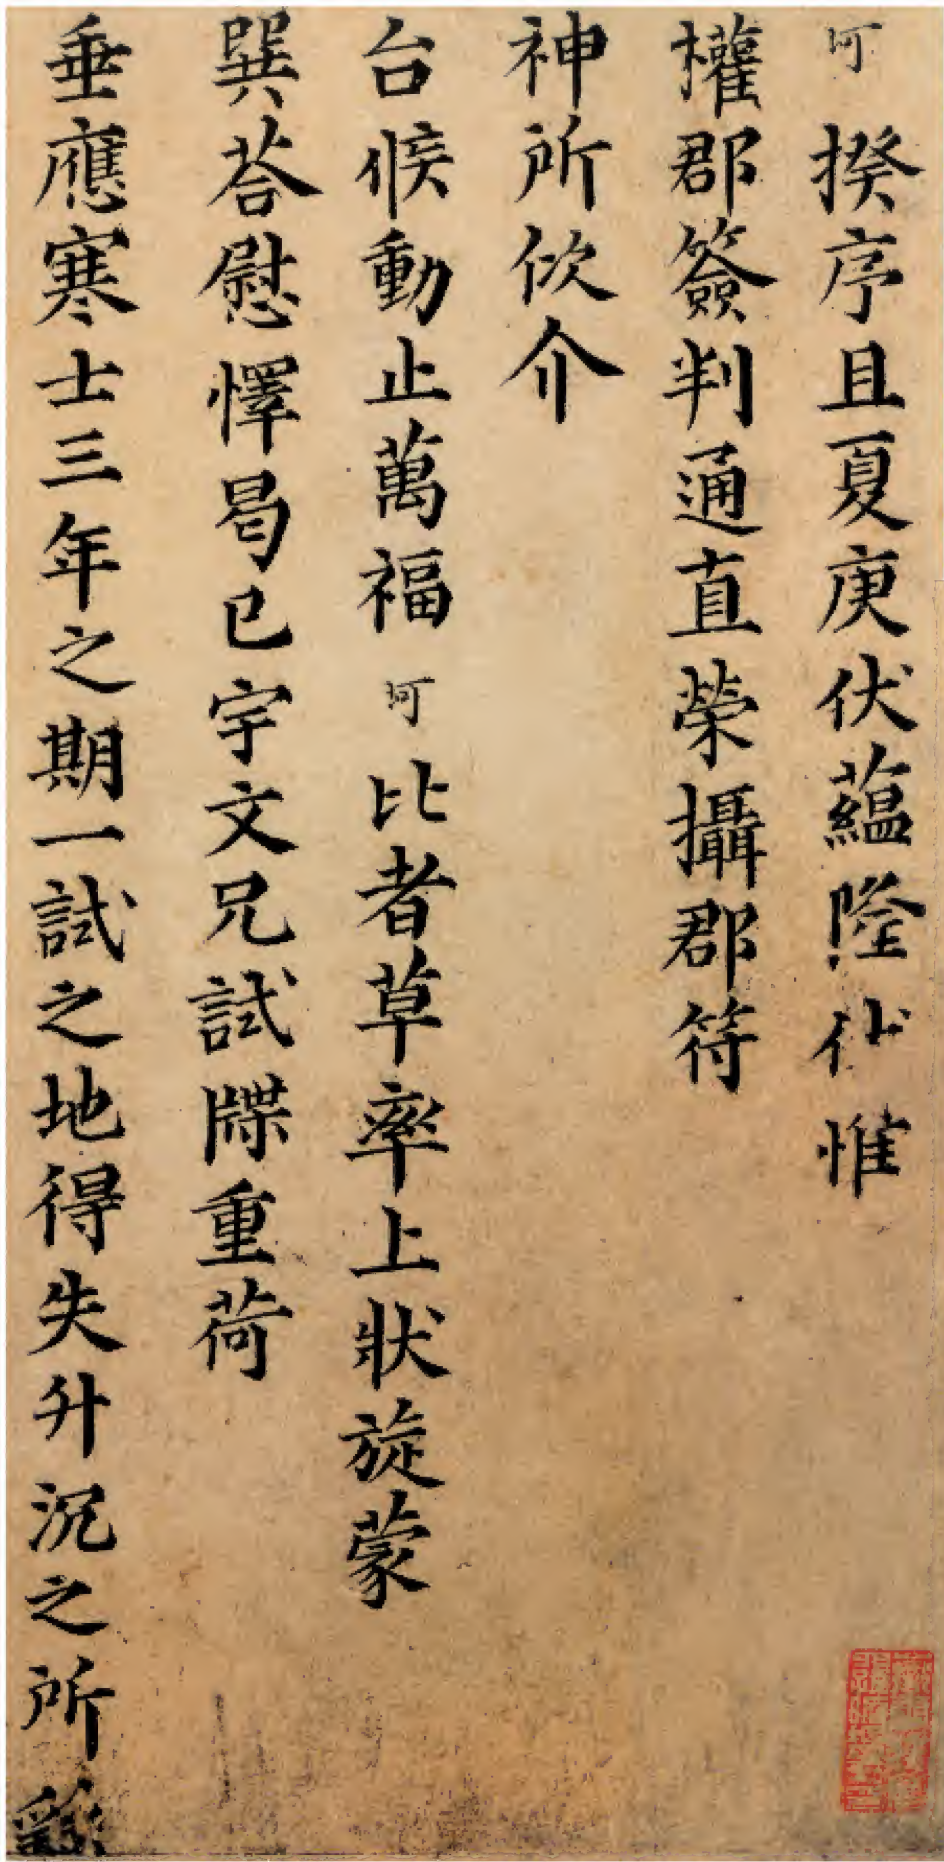 坷揆序且夏庚伏蘊隆伏惟
權郡簽判通直榮攝郡符
神所佽介
台候動止萬福坷比者草率上狀旋蒙
巽荅慰懌曷已宇文兄試牒重荷
垂應寒士三年之期一試之地得失升沉之所繇